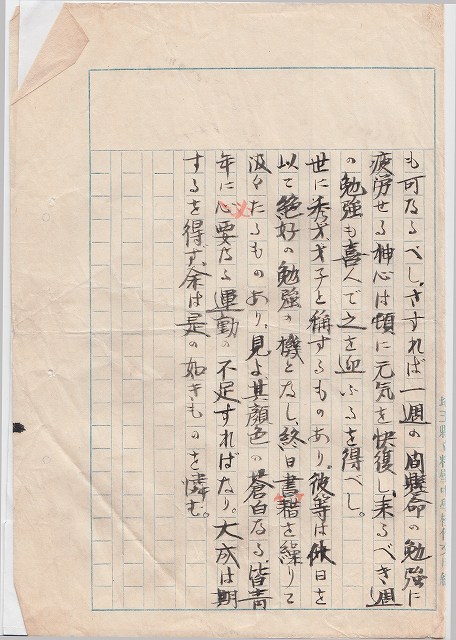 も可なるべし、さすれば一週の間懸命の勉強に
疲労せる神心は頓に元気を快復し、来るべき週
の勉強も喜んで之を迎ふるを得べし。
世に秀才才子と称するものあり。彼等は休日を
以て絶好の勉強の機となし、終日書籍を繰りて
汲々たるものあり、見よ其顔色の蒼白なる、皆青
年に心要なる運動の不足すればなり。大成は期
するを得ず、余は是の如きものを憐む。